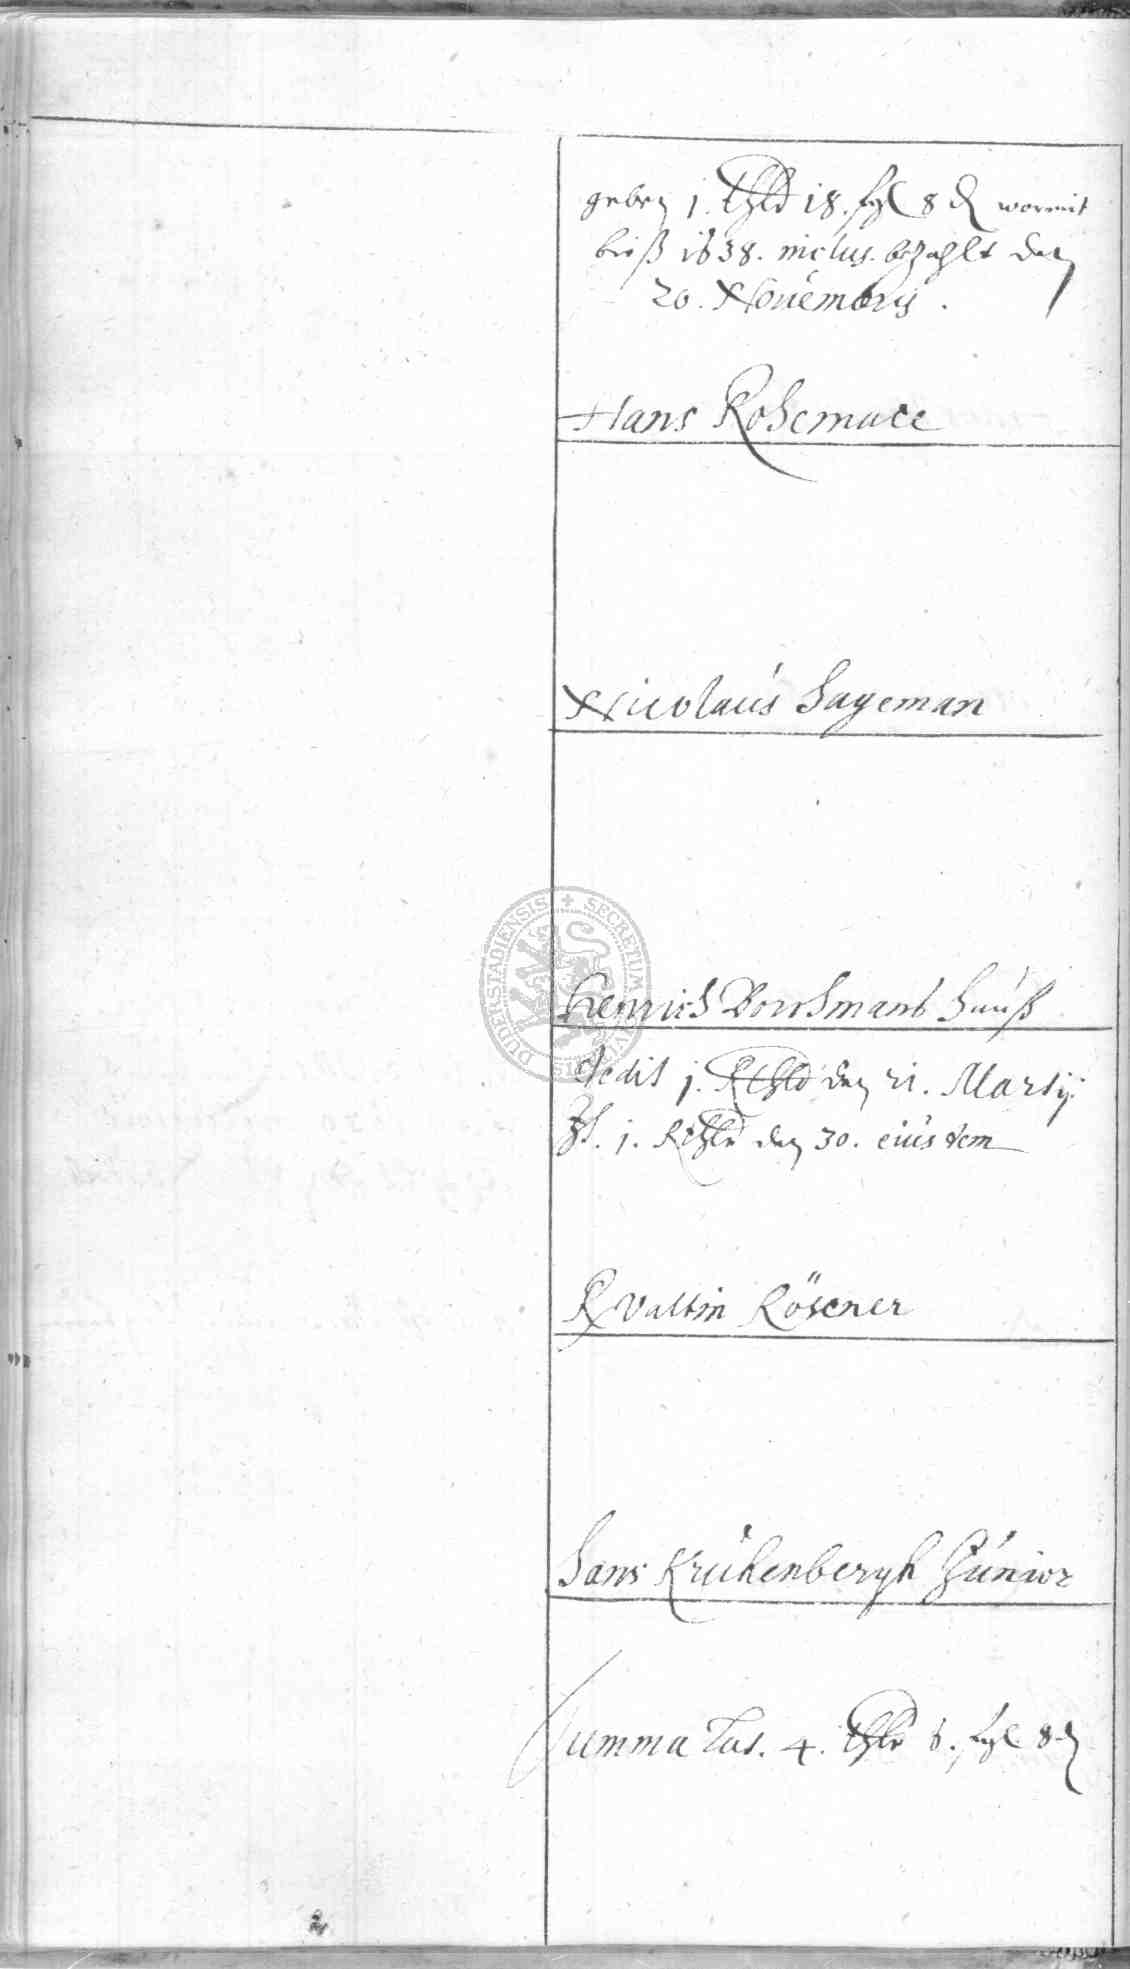 geben 1. thlr 18. sgl 8 d wormit
bieß 1638. inclus. bezahlt den
20. Nouembris.
Hans Rosemate
Nicolaus Hageman
Henrich Borchmans Hauß
dedit j. Rthlr den 21. Martij.
It. j. Rthlr den 30. eiusdem
Valtin Rösener
Hans Kruhenbergh Junior
Summa Lat. 4. thlr 6. sgl 8 d
DUDERSTADIENSIS + SECRETUM CIVITATIS